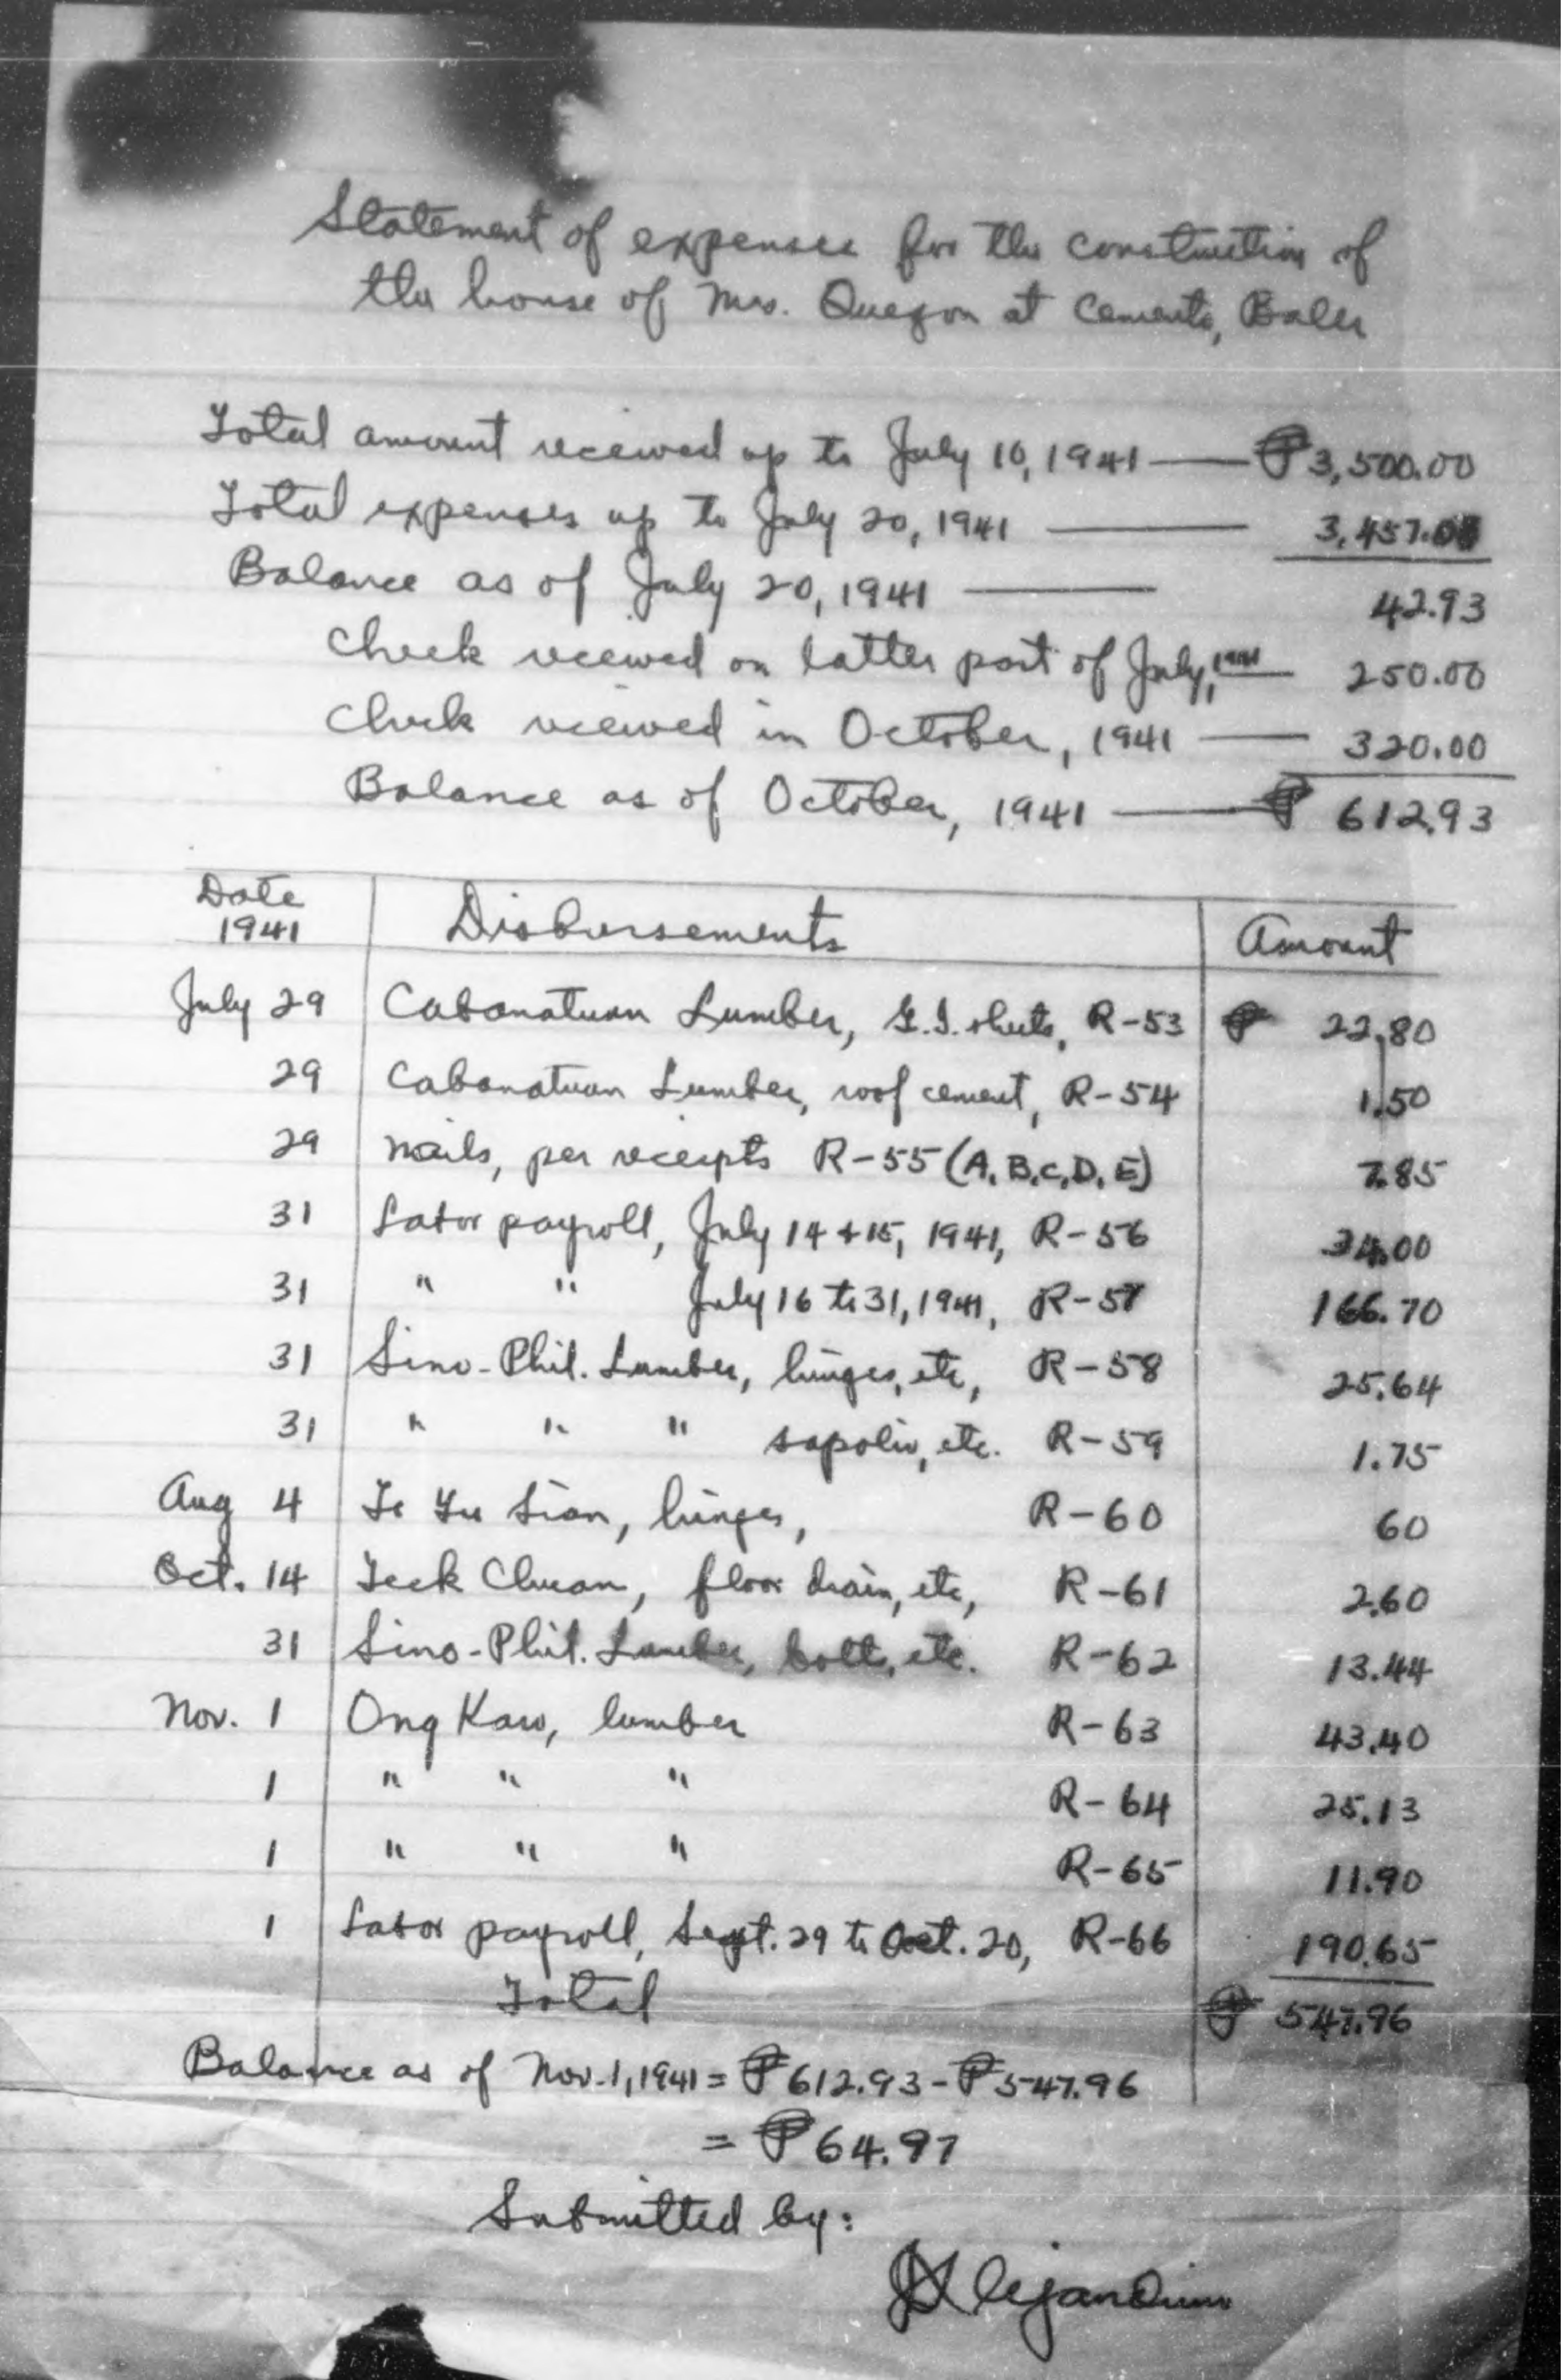 Statement of expenses for the construction of
the house of Mrs. Quezon at Cemento, Baler
Total amount received up to July 10, 1941 — ₱3,500.00
Total expenses up to July 20, 1941 — 3,457.07
Balance as of July 20, 1941 — 42.93
Check received on latter part of July, 1941 — 250.00
Check received in October, 1941 — 320.00
Balance as of October, 1941 — ₱ 612.93
Date 1941 Disbursements Amount
July 29 Cabanatuan Lumber, G.I. sheets, R-53 ₱ 22.80
29 Cabanatuan Lumber, roof cement, R-54 1.50
29 Nails, per receipts R-55 (A,B,C,D,E) 7.85
31 Labor payroll, July 14 + 15, 1941, R-56 34.00
31 " " July 16 to 31, 1941, R-57 166.70
31 Sino-Phil. Lumber, hinges, etc, R-58 25.64
31 " " " sapolin, etc. R-59 1.75
Aug 4 Te Yu Sian, hinges, R-60 60
Oct. 14 Teck Chuan, floor drain, etc, R-61 2.60
31 Sino-Phil. Lumber, bolts, etc. R-62 13.44
Nov. 1 Ong Kaw, lumber R-63 43.40
1 " " " R-64 25.13
1 " " " R-65 11.90
1 Labor payroll, Sept. 29 to Oct. 20, R-66 190.65
Total ₱ 547.96
Balance as of Nov. 1, 1941 = ₱612.93 - ₱547.96
= ₱64.97
Submitted by:
Alejandrino